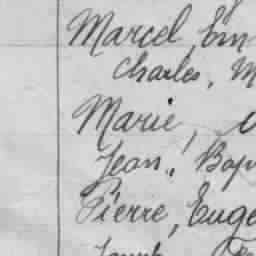 Marcel, Em
Charles, M
Marie,
Jean, Bap
Pierre, Euge